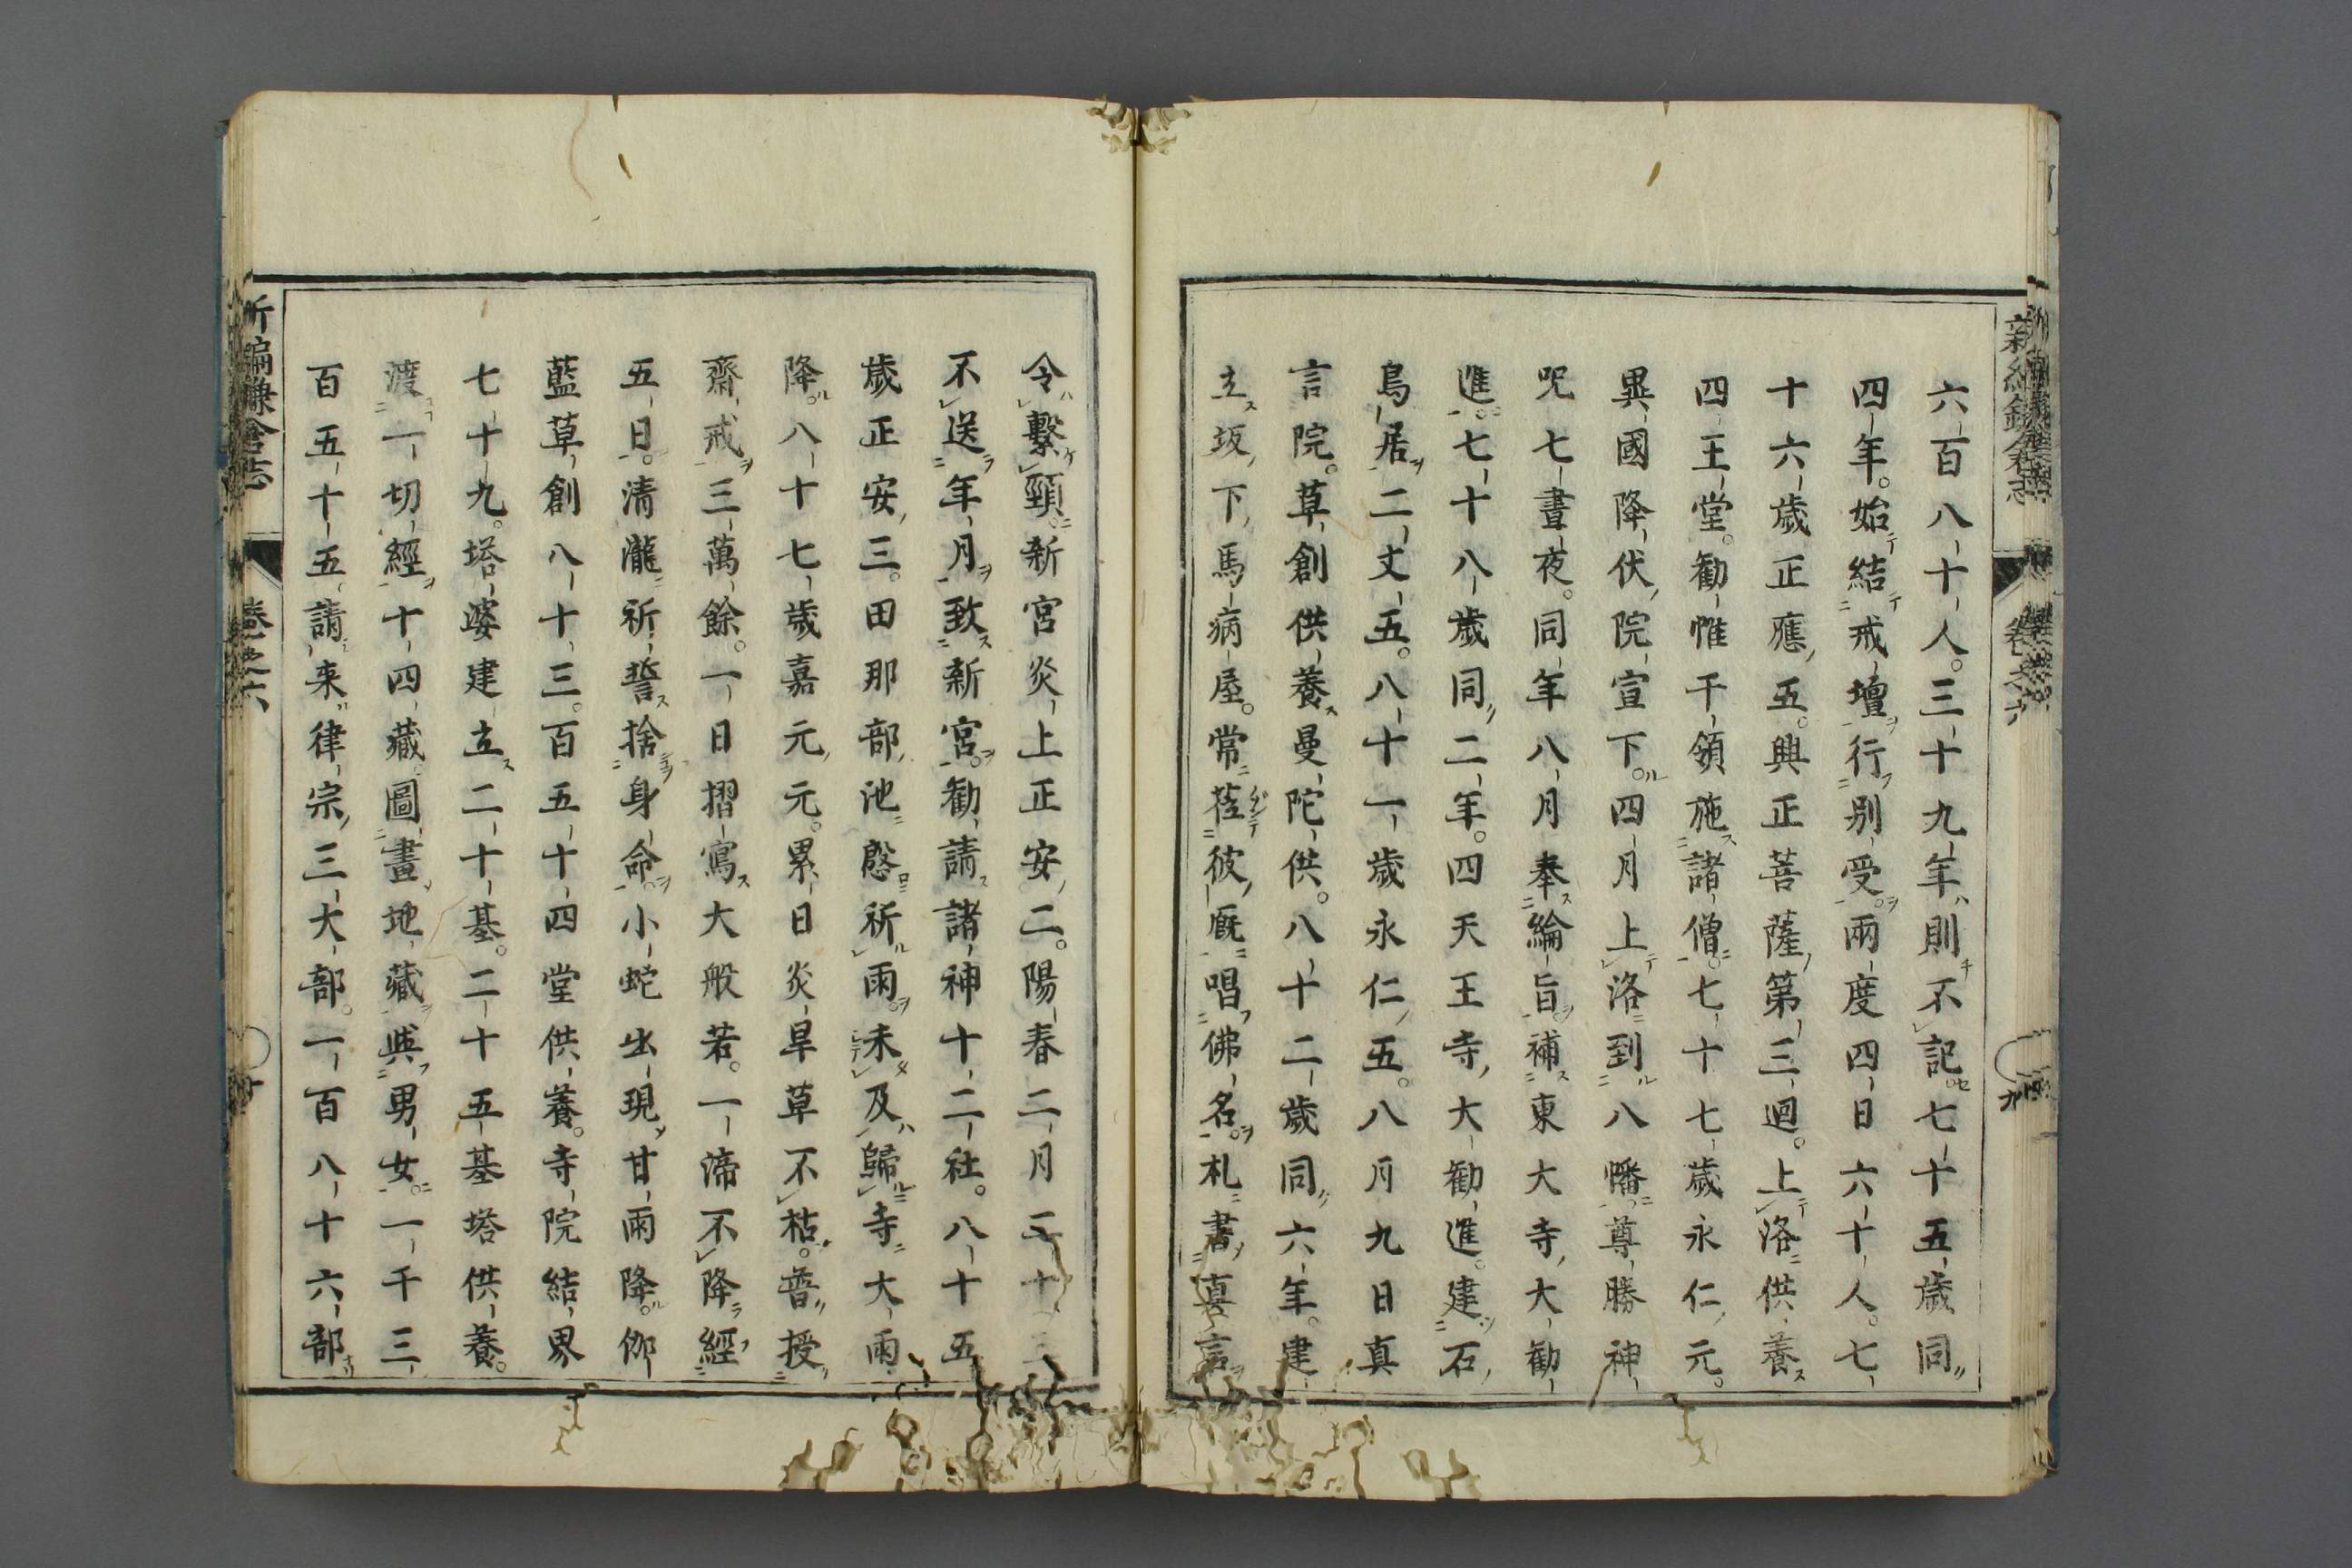 六百八十人。三十九年則不記。七十五歳同
四年。始結戒壇行別受。兩度四日六十人。七
十六歳正應五。興正菩薩第三廻。上洛供養
四王堂。勸惟千領施諸僧。七十七歳永仁元。
異國降伏院宣下。四月上洛到八幡尊勝神
呪七晝夜。同年八月奉綸旨補東大寺大勸
進。七十八歳同二年。四天王寺大勸進。建石
鳥居二丈五。八十一歳永仁五。八月九日真
言院。草創供養曼陀供。八十二歳同六年。建
立坂下馬病屋。常莅彼廐唱佛名。札書真言
令繋頸。新宮炎上正安二。陽春二月二十三
不送年月致新宮。勸請諸神十二社。八十五
歳正安三。田那部池慇祈雨。未及歸寺大雨
降。八十七歳嘉元元。累日炎旱草不枯。普授
齋戒三萬餘。一日摺寫大般若。一渧不降經
五日。清瀧祈誓捨身命。小蛇出現甘雨降。伽
藍草創八十三。百五十四堂供養。寺院結界
七十九。塔婆建立二十基。二十五基塔供養。
渡一切經十四藏。圖畫地藏與男女。一千三
百五十五。請來律宗三大部。一百八十六部
新編鎌倉志 卷之六 九
新編鎌倉志 卷之六 十